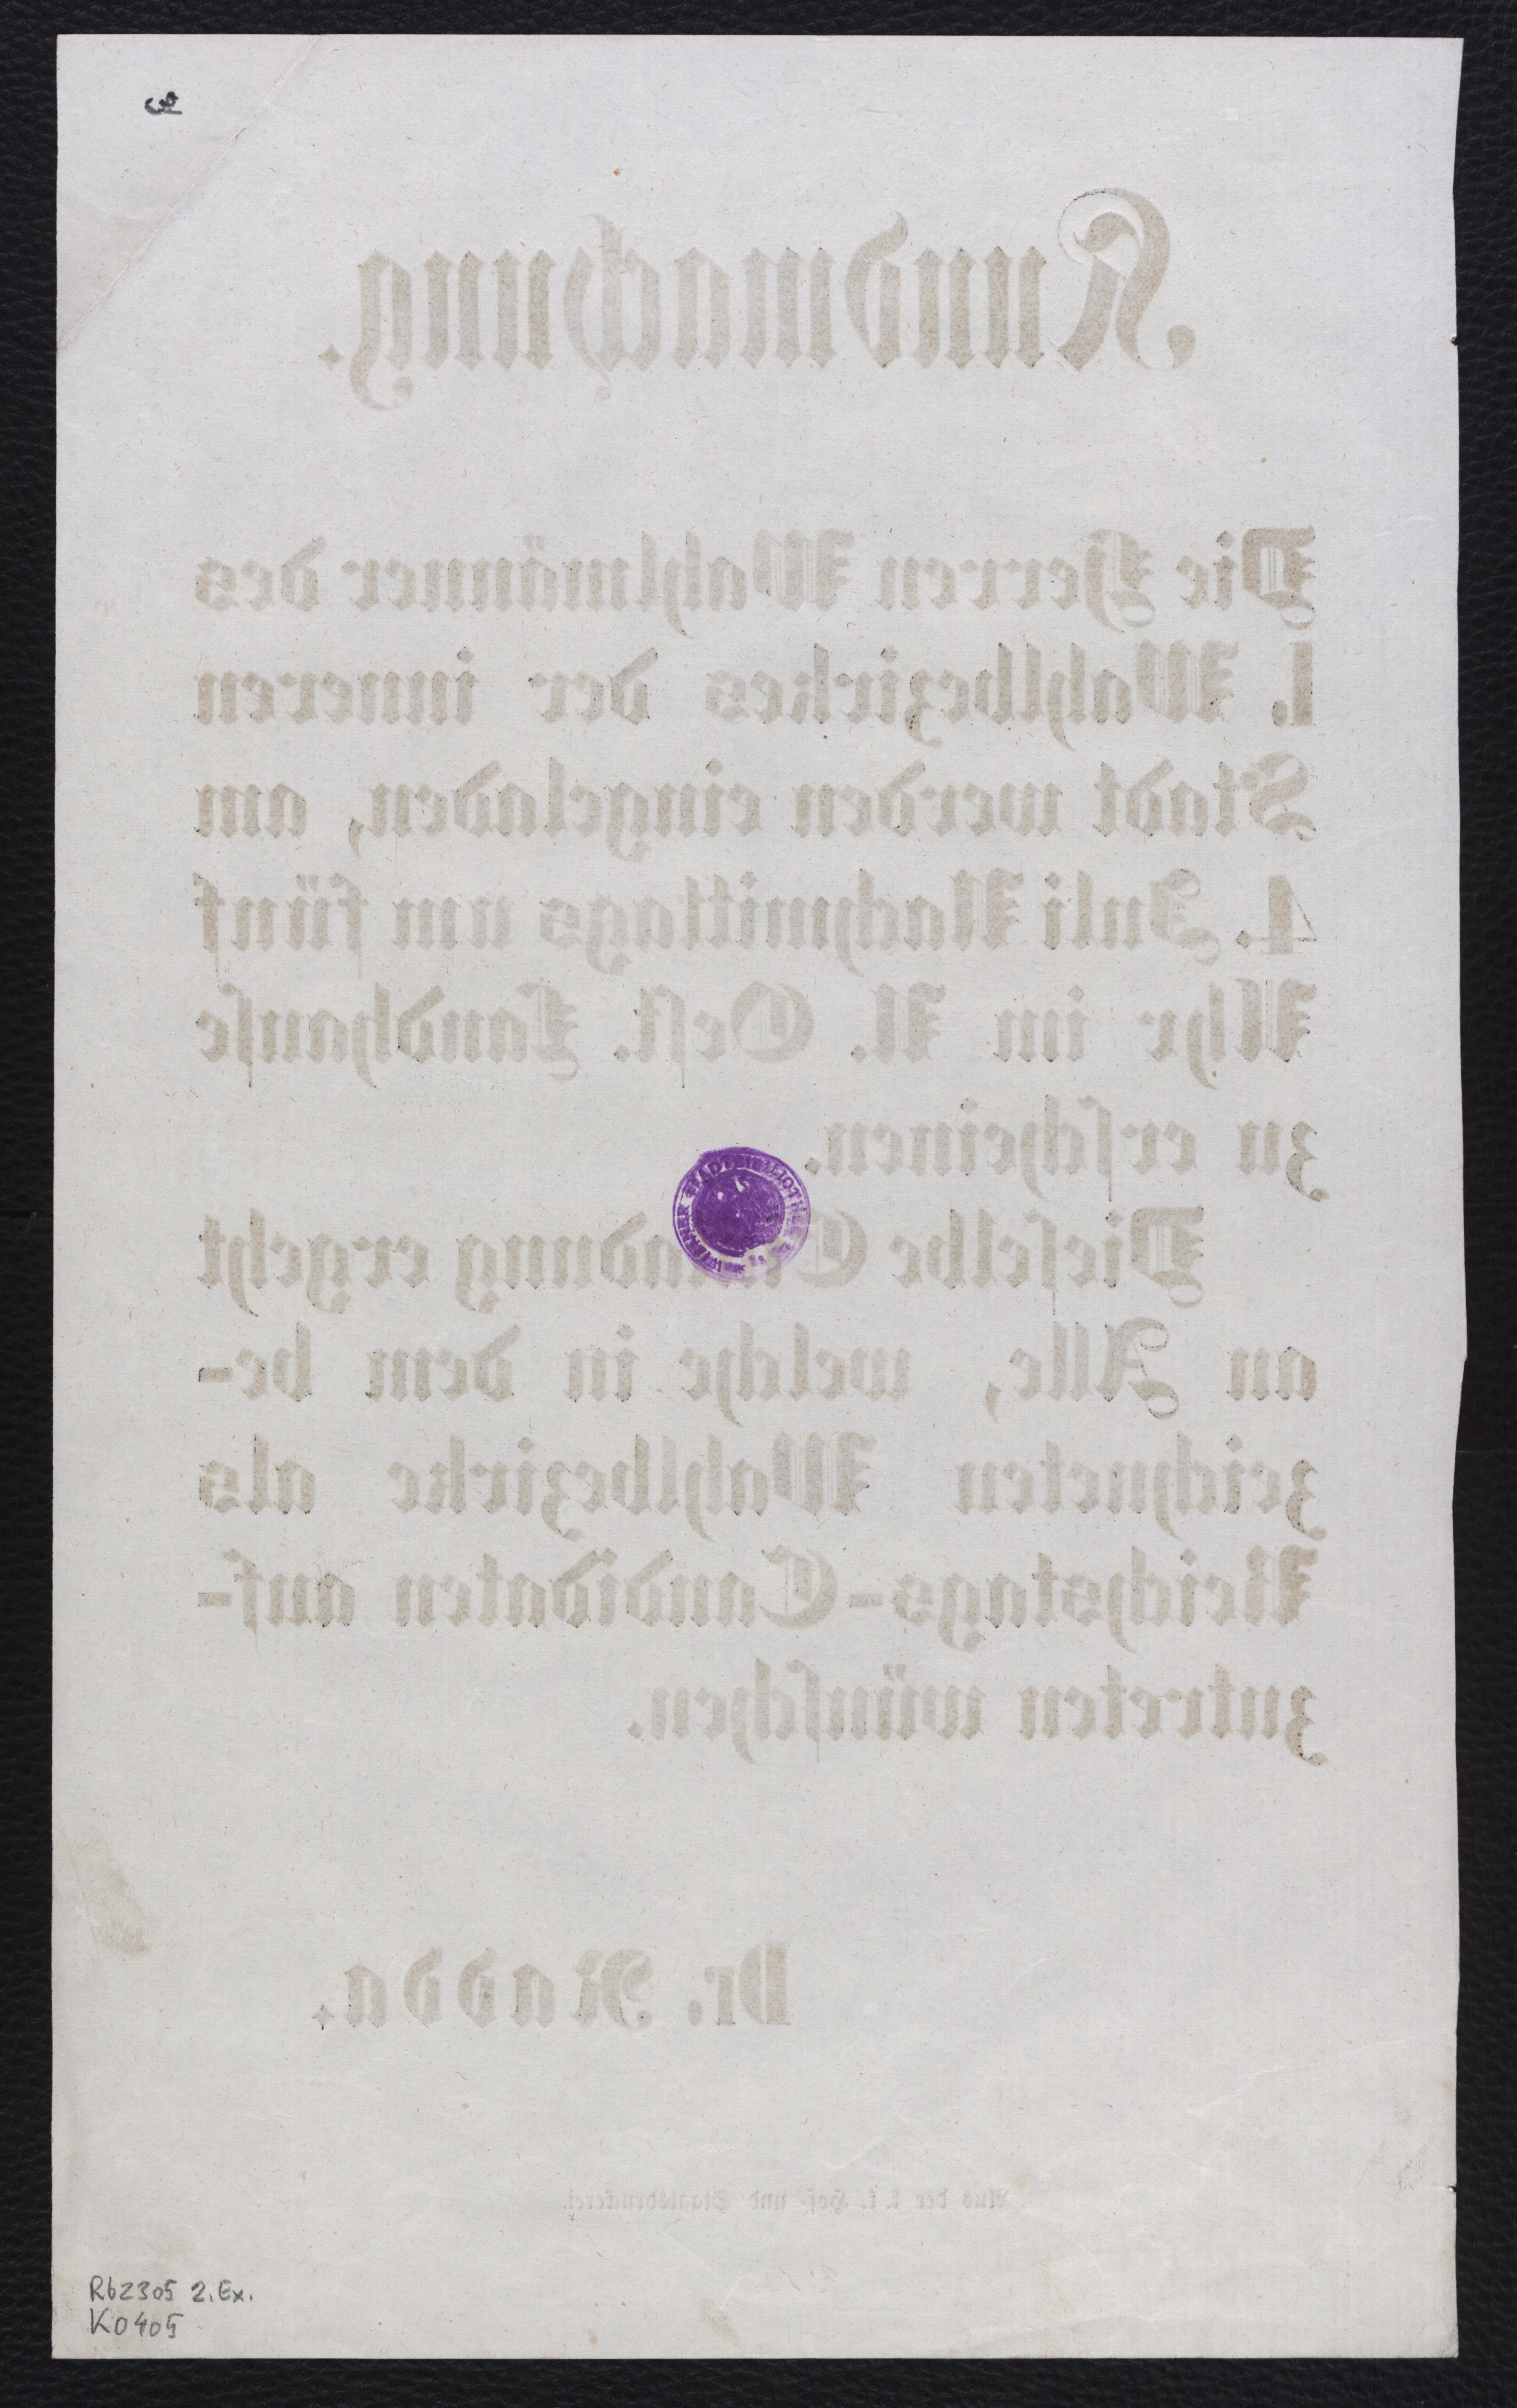 Kundmachung.
Die Herren Wahlmänner des
1. Wahlbezirkes der inneren
Stadt werden eingeladen, am
4. Juli Nachmittags um fünf
Uhr im N. Oest. Landhause
zu erscheinen.
WIENER STADTBIBLIOTHEK
Dieselbe Einladung ergeht
an Alle, welche in dem be-
zeichneten Wahlbezirke als
Reichstags-Candidaten auf-
zutreten wünschen.
Dr. Nadda.
Aus der k. k. Hof- und Staatsdruckerei.
Rb2305 2. Ex.
K0405